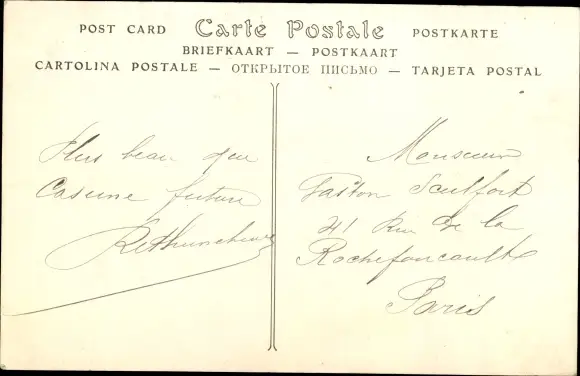 POST CARD Carte Postale POSTKARTE
BRIEFKAART — POSTKAART
CARTOLINA POSTALE — ОТКРЫТОЕ ПИСЬМО — TARJETA POSTAL
Plus beau que
Caserne future
Monsieur
Gaston Sculfort
41 Rue de la
Rochefoucault
Paris